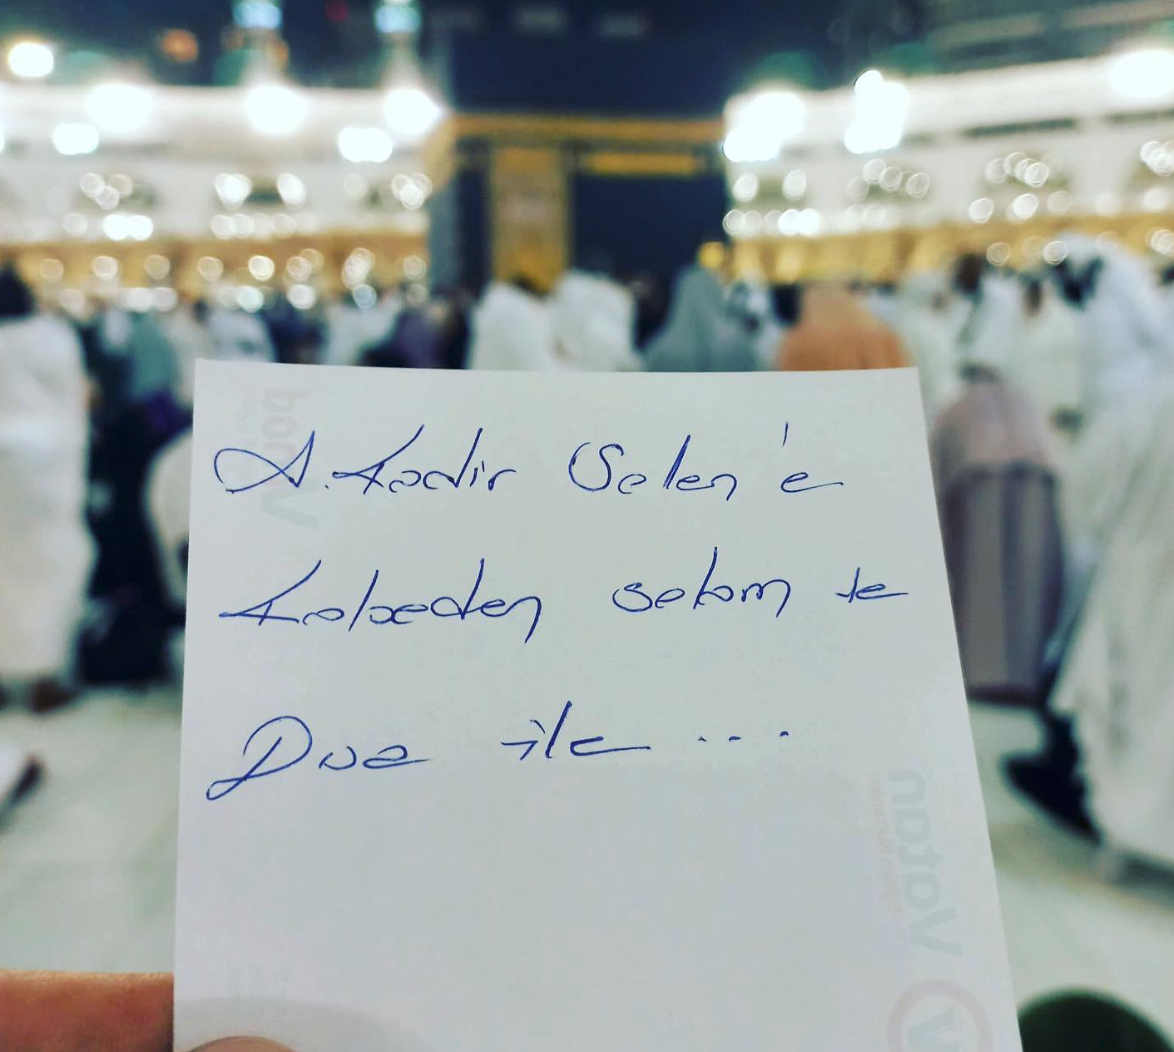 A. Kadir Selen'e
Kabeden selam ve
Dua ile ....
Vatan